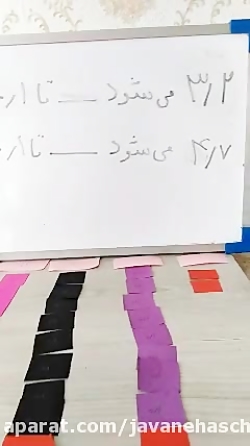 ۳٫۲ می‌شود — تا ۰٫۱
۴٫۷ می‌شود — تا ۰٫۱
aparat.com/javanehasch